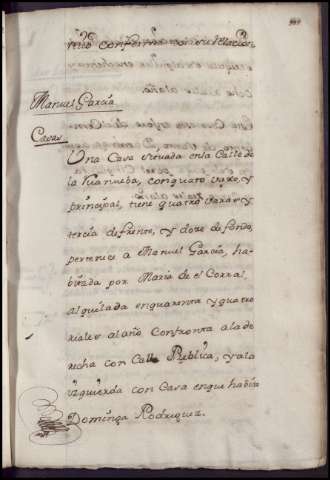 Manuel Garcia
Casas
Una Casa situada en la Calle de
la con quarto vaxo, y
principal, tiene quatro varas y
tercia de frente, y doze de fondo,
pertenece a Manuel Garcia, ha-
bitada por Maria de el Corral,
alquilada en quarenta y quatro
riales al año Confronta a la de
recha con Calle Publica, y a la
izquierda con Casa en que habita
Dominga Rodriguez.